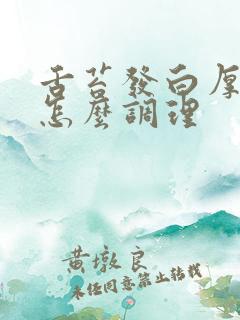 舌苔發白厚
怎麼調理
黄墩良
未经同意禁止转载